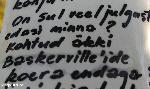 On sul veel julgust
edasi minna?
Kohtud äkki
Baskerville'ide
koera endaga